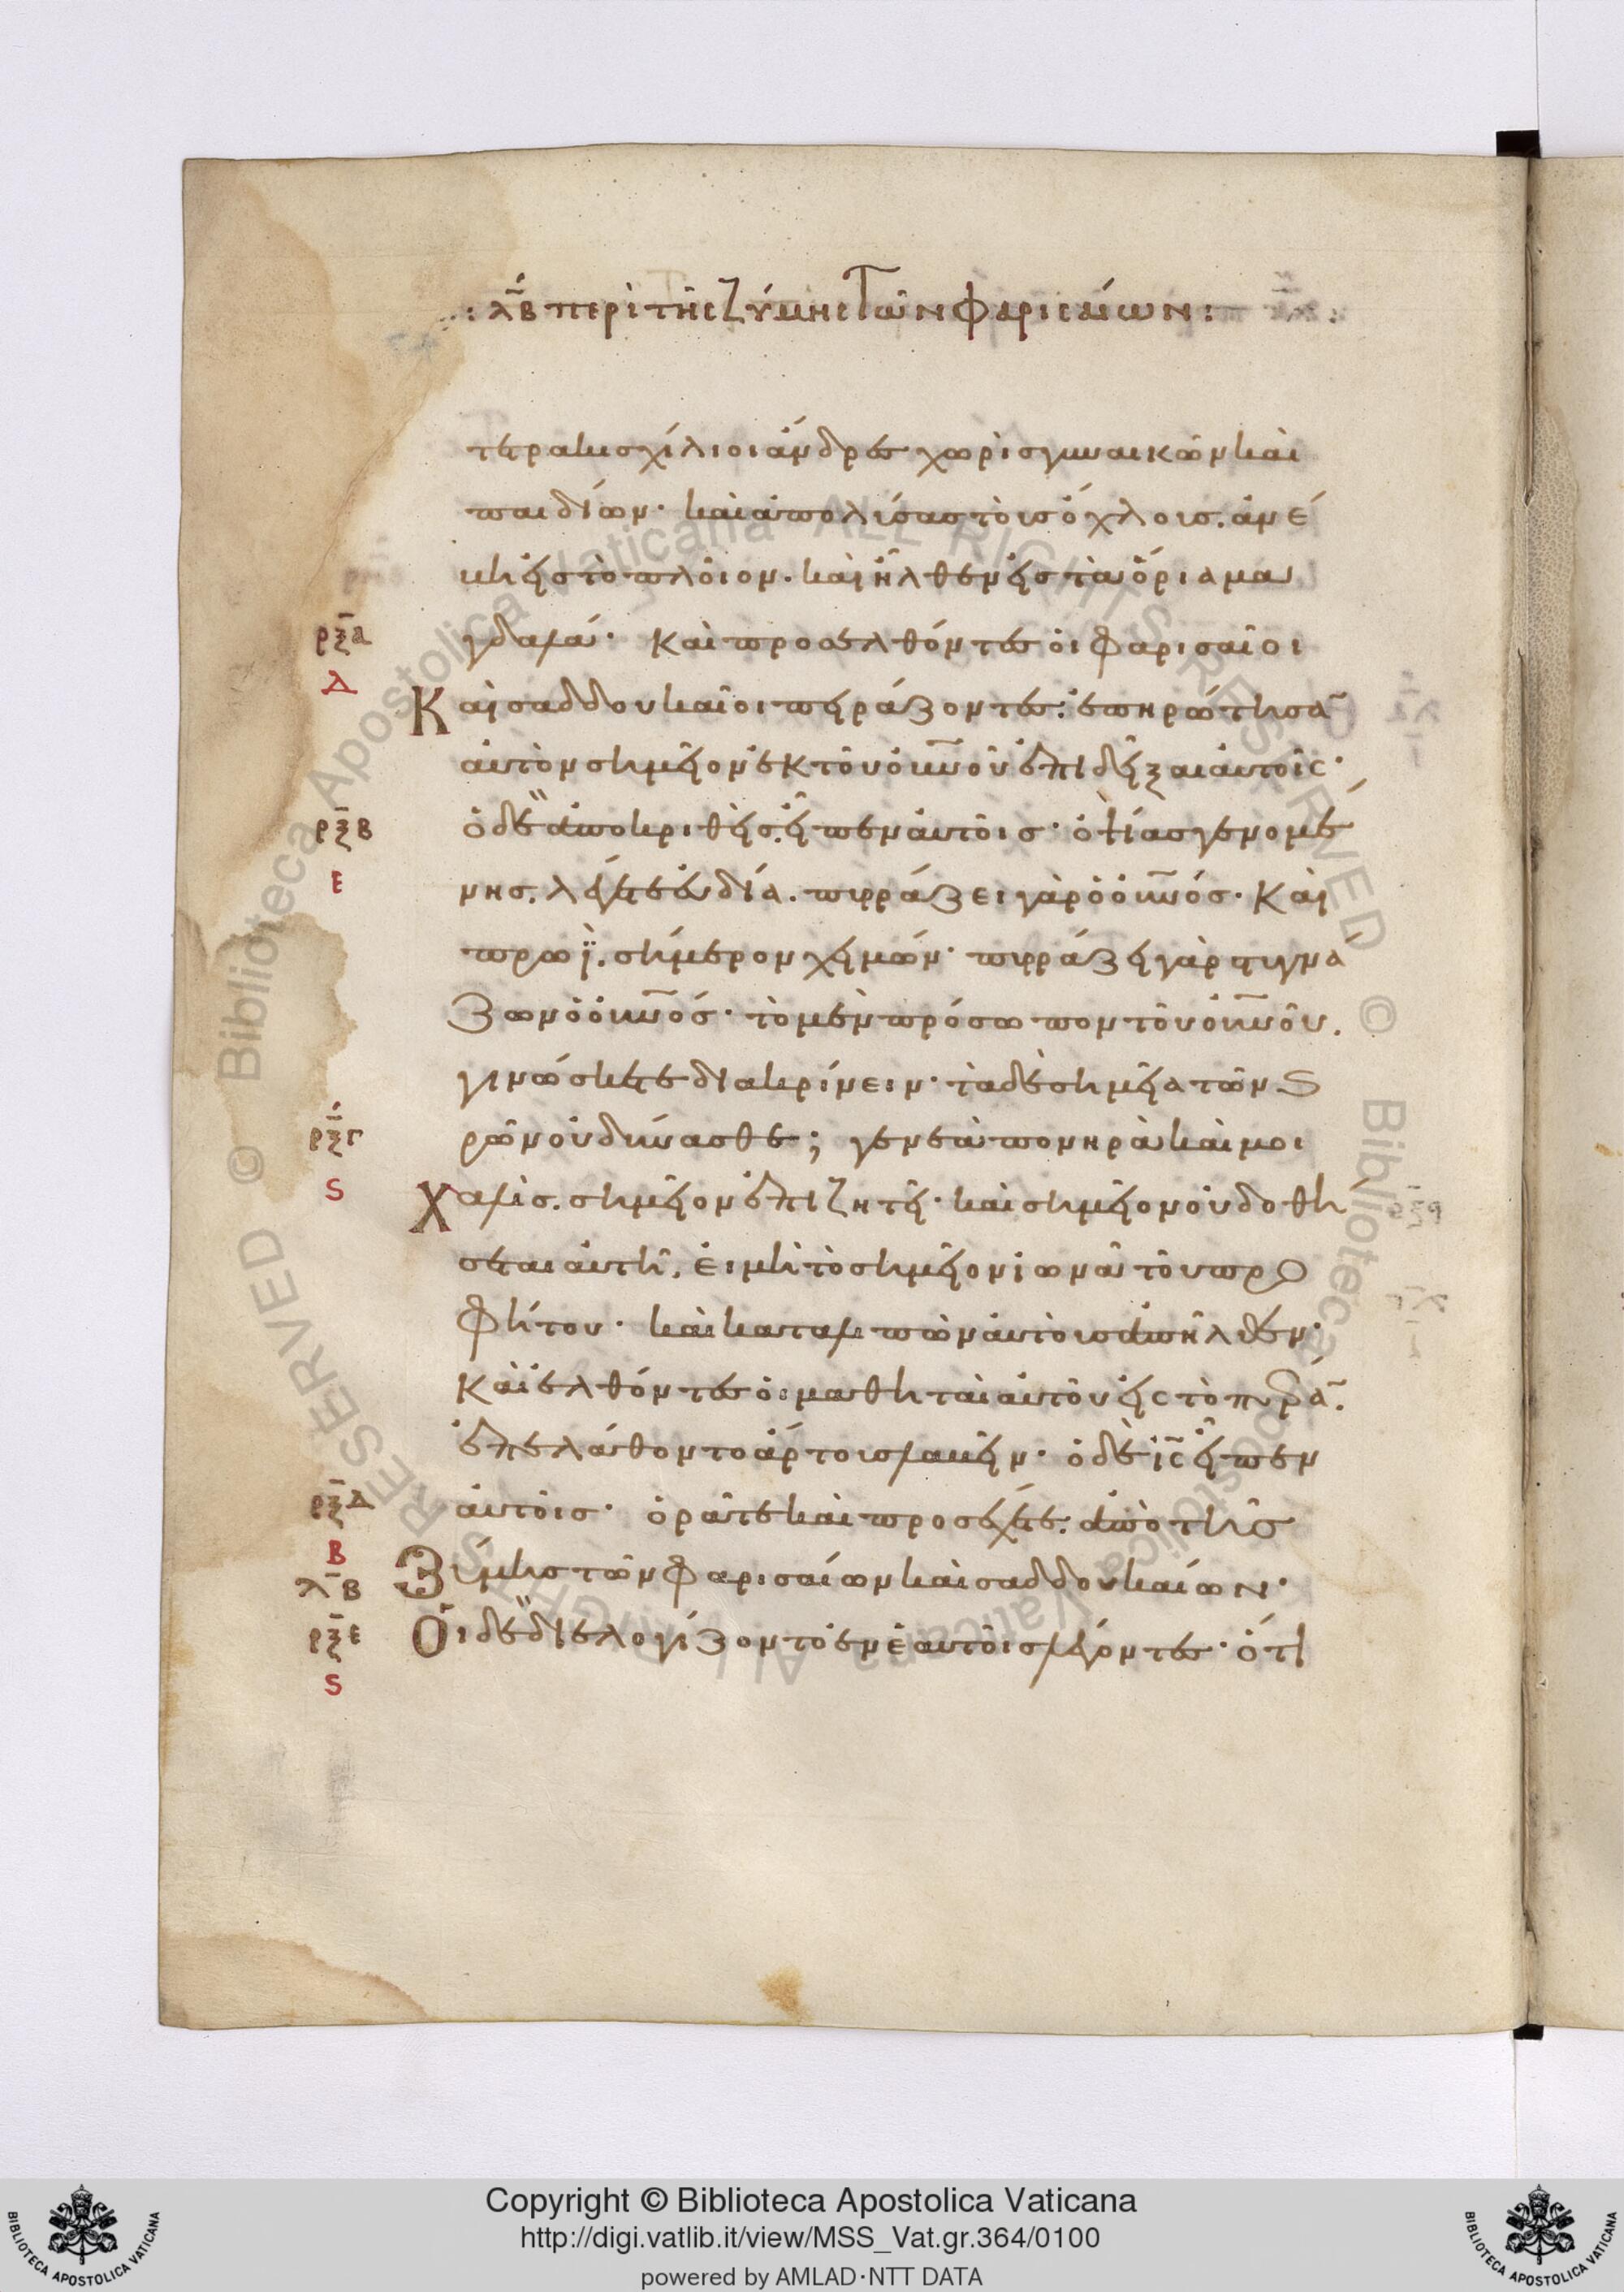 : λβ περὶ τῆς ζύμης τῶν φαρισαίων :
τετρακισχίλιοι ἄνδρες χωρὶς γυναικῶν καὶ
παιδίων· καὶ ἀπολύσας τοὺς ὄχλους. ἀνέ
βη εἰς τὸ πλοῖον. καὶ ἦλθεν εἰς τὰ ὅρια μα
ρξα
γδαλά· Καὶ προσελθόντες οἱ Φαρισαῖοι
Δ
Καὶ σαδδουκαῖοι πειράζοντες. ἐπηρώτησα̅
αὐτὸν σημεῖον ἐκ τοῦ οὐ̅νοῦ ἐπιδεῖξαι αὐτοῖς·
ρξβ
ὁ δὲ ἀποκριθεὶς. εἶπεν αὐτοῖς· ὀψίας γενομέ
Ε
νης. λέγετε εὐδία. πυρράζει γὰρ ὁ οὐ̅νός· Καὶ
πρωῒ. σήμερον χειμών· πυρράζει γὰρ στυγνά
ζων ὁ οὐ̅νός· τὸ μὲν πρόσωπον τοῦ οὐ̅νοῦ.
γινώσκετε διακρίνειν· τὰ δὲ σημεῖα τῶν
ρξγ
ρῶν οὐ δύνασθε; γενεὰ πονηρὰ καὶ μοι
Ϛ
Χαλὶς. σημεῖον ἐπιζητεῖ· καὶ σημεῖον οὐ δοθή
σεται αὐτῆ. εἰ μὴ τὸ σημεῖον ἰωνᾶ τοῦ προ
Φήτου· καὶ καταλιπὼν αὐτοὺς ἀπῆλθεν·
Καὶ ἐλθόντες οἱ μαθηταὶ αὐτοῦ εἰς τὸ πέρα̅.
ἐπελάθοντο ἄρτους λαβεῖν· ὁ δὲ ι̅ς̅ εἶπεν
ρξδ
αὐτοῖς· ὁρᾶτε καὶ προσέχετε. ἀπὸ τῆς
Β
λβ
Ζύμης τῶν Φαρισαίων καὶ σαδδουκαίων·
ρξε
Οἱ δὲ διελογίζοντο ἐν ἑαυτοῖς λέγοντες· ὅτι
Ϛ
© Biblioteca Apostolica Vaticana ALL RIGHTS RESERVED © Biblioteca Apostolica Vaticana ALL RIGHTS RESERVED
Copyright © Biblioteca Apostolica Vaticana
http://digi.vatlib.it/view/MSS_Vat.gr.364/0100
powered by AMLAD·NTT DATA
BIBLIOTECA APOSTOLICA VATICANA
BIBLIOTECA APOSTOLICA VATICANA